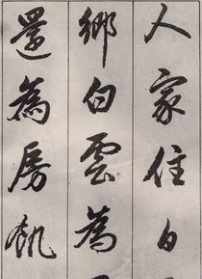 人家住白
鄉白雲為
還為房